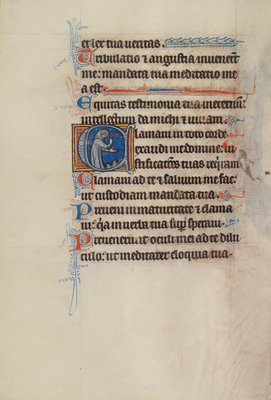 et lex tua veritas.
Tribulatio ⁊ angustia invenerūt
me: mandata tua meditatio me
a est.
Equitas testimonia tua in eternū:
intellectum da michi ⁊ vivam.
Clamavi in toto corde
exaudi me domine: iu
stificationes tuas requiram.
Clamavi ad te ⁊ salvum me fac:
ut custodiam mandata tua.
Preveni in maturitate ⁊ clama
vi: q̄a in verba tua sup̄ speravi.
Prevenerūt oculi mei ad te dilu
culo: ut meditarer eloquia tua.